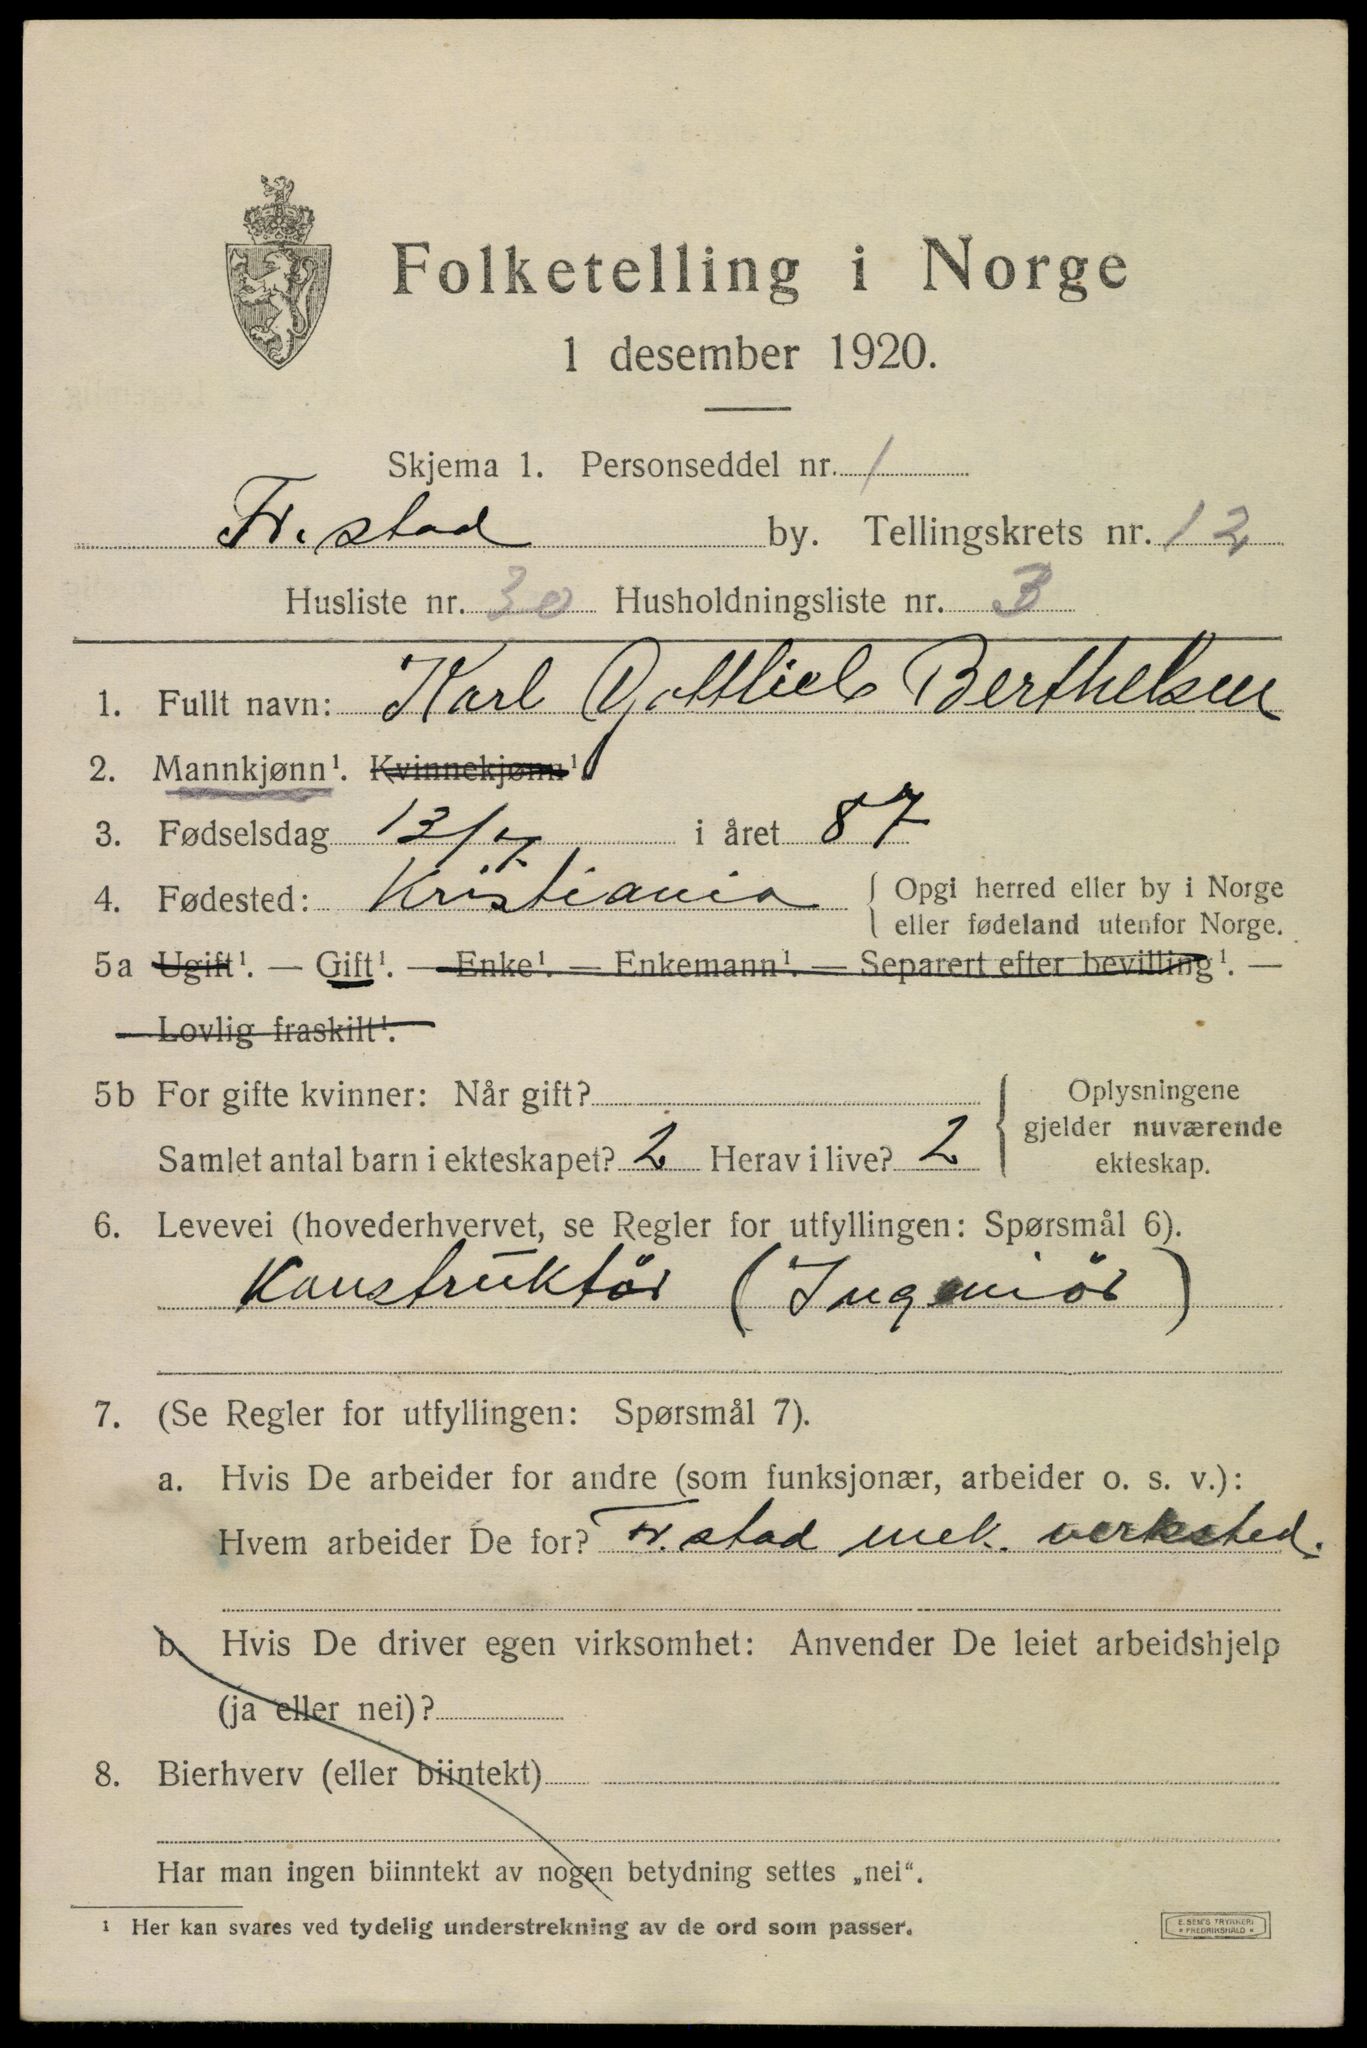 Folketelling i Norge
1 desember 1920.
Skjema 1. Personseddel nr. 1
Fr.stad by. Tellingskrets nr. 12
Husliste nr. 30 Husholdningsliste nr. 3
1. Fullt navn: Karl Gottlieb Berthelsen
2. Mannkjønn¹. Kvinnekjønn¹.
3. Fødselsdag 13/7 i året 87
4. Fødested: Kristiania { Opgi herred eller by i Norge
eller fødeland utenfor Norge.
5a Ugift¹. — Gift¹. — Enke¹. — Enkemann¹. — Separert efter bevilling¹. —
Lovlig fraskilt¹.
5b For gifte kvinner: Når gift?
Samlet antal barn i ekteskapet? 2 Herav i live? 2
{ Oplysningene
gjelder nuværende
ekteskap.
6. Levevei (hovederhvervet, se Regler for utfyllingen: Spørsmål 6).
Konstruktör (Ingeniör)
7. (Se Regler for utfyllingen: Spørsmål 7).
a. Hvis De arbeider for andre (som funksjonær, arbeider o. s. v.):
Hvem arbeider De for? Fr.stad mek. verksted.
b. Hvis De driver egen virksomhet: Anvender De leiet arbeidshjelp
(ja eller nei)?
8. Bierhverv (eller biintekt)
Har man ingen biinntekt av nogen betydning settes „nei“.
¹ Her kan svares ved tydelig understrekning av de ord som passer.
E. SEM'S TRYKKERI
* FREDRIKSHALD *